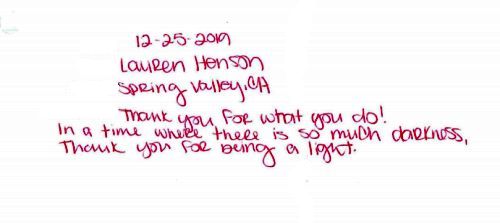 12-25-2019
Lauren Henson
Spring Valley, CA
Thank you for what you do!
In a time where there is so much darkness,
Thank you for being a light.